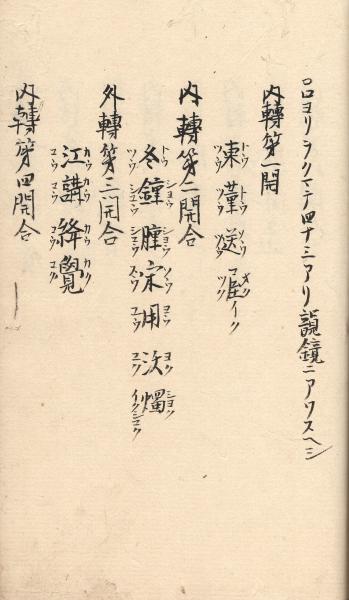 口ヨリラクマテ四十三アリ韻鏡ニアワスヘシ
内轉第一開
東董送屋
トウ トウ ソウ ヲク
ツウ ツウ ツウ イク
内轉第二開合
冬鐘腫宋用沃燭
トウ シヨウ シヨウ ソウ ヨウ ヨク シヨク
ツウ シユウ シユウ スウ ユウ
外轉第三開合
江講絳覺
カウ カウ カウ カク
コウ コウ コウ コク
内轉第四開合